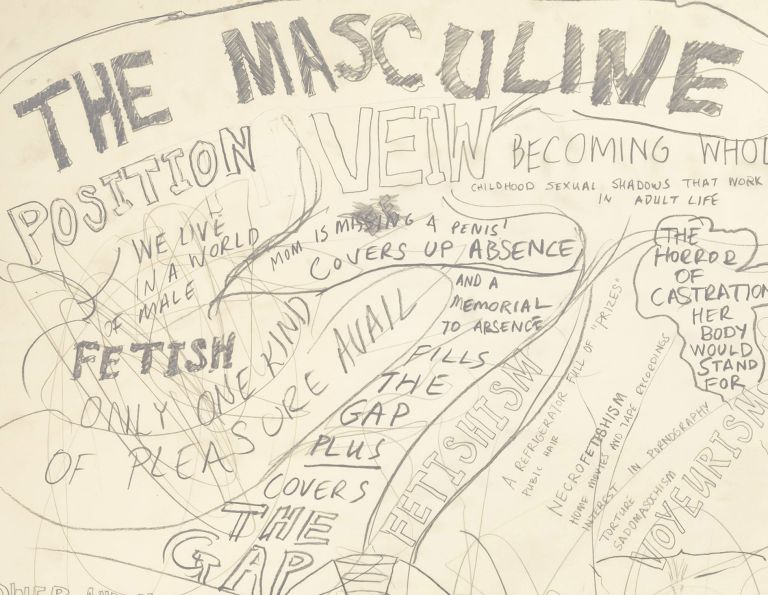 THE MASCULINE
POSITION
VEIW
BECOMING WHOL
CHILDHOOD SEXUAL SHADOWS THAT WORK
IN ADULT LIFE
WE LIVE
IN A WORLD
OF MALE
FETISH
ONLY ONE KIND
OF PLEASURE AVAIL
MOM IS MISSING A PENIS'
COVERS UP ABSENCE
AND A
MEMORIAL
TO ABSENCE
FILLS
THE
GAP
PLUS
COVERS
THE
GAP
FETISHISM
A REFRIGERATOR FULL OF "PRIZES"
PUBIC HAIR
NECROFETISHISM
HOME MOVIES AND TAPE RECORDINGS
INTEREST IN PORNOGRAPHY
TORTURE
SADOMASOCHISM
VOYEURISM
THE
HORROR
OF
CASTRATION
HER
BODY
WOULD
STAND
FOR